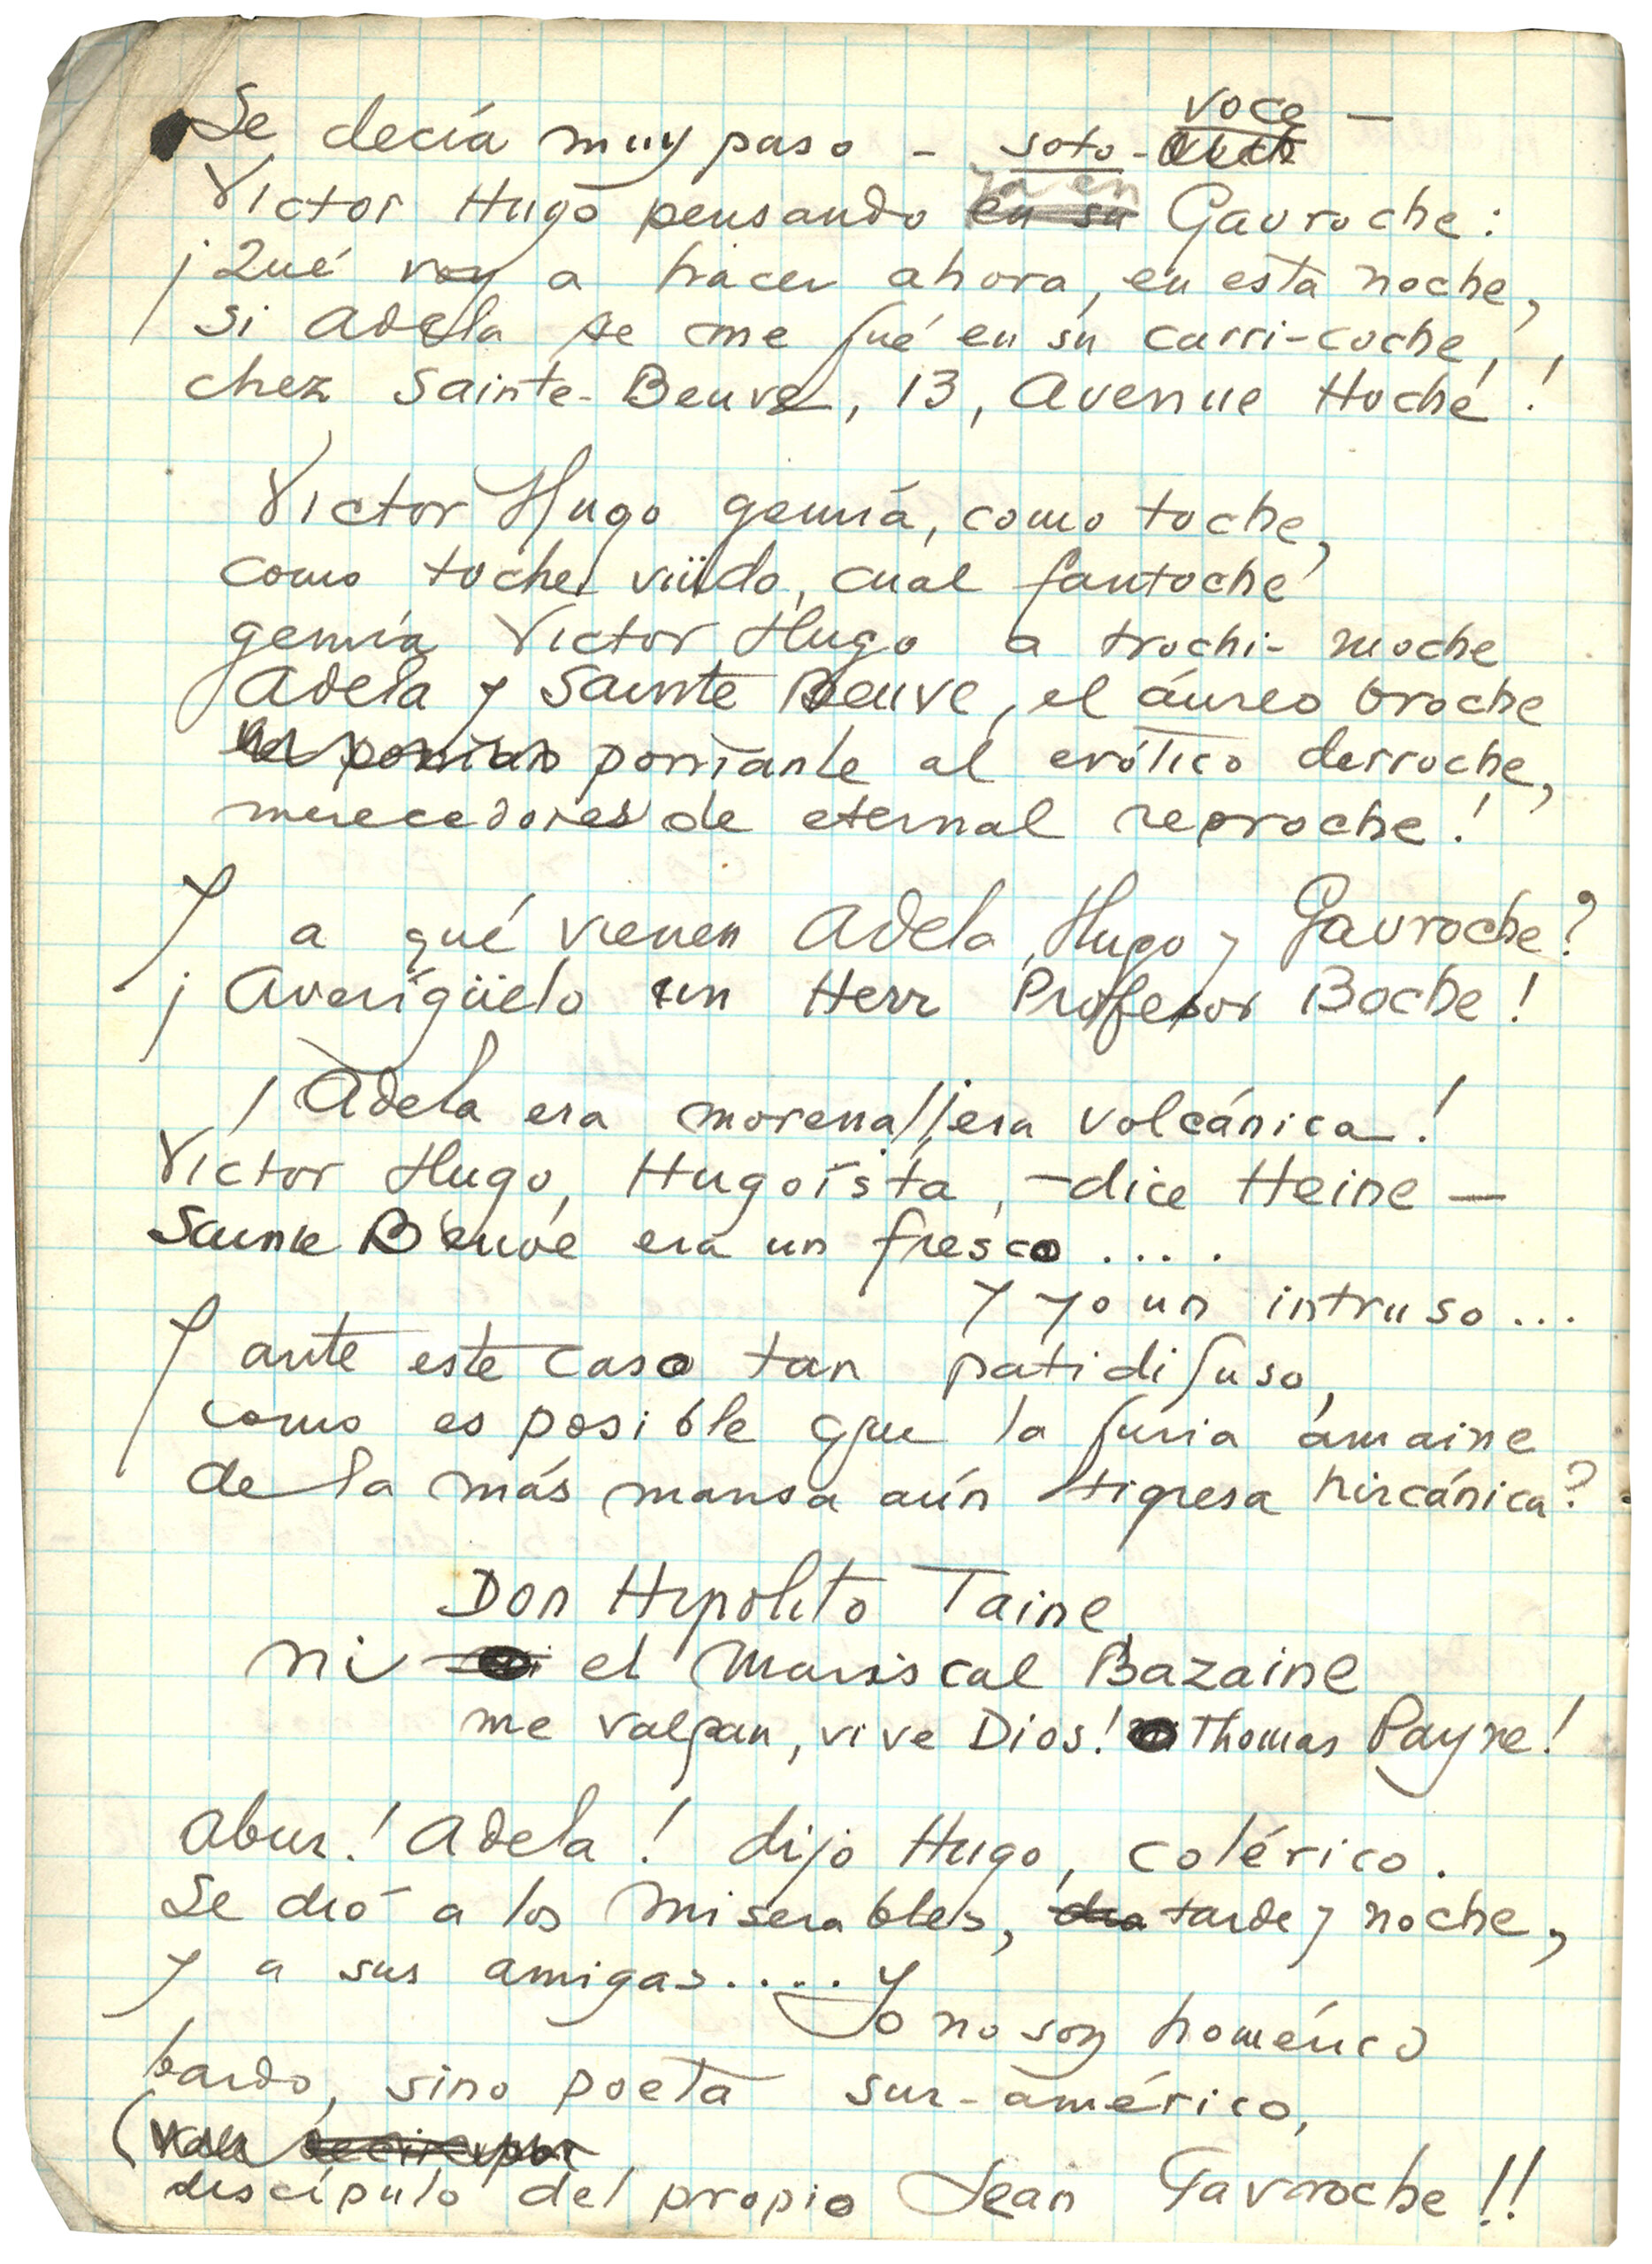 Se decía muy paso - soto-voce -
Victor Hugo pensando ya en Gavroche:
¡Qué voy a hacer ahora, en esta noche,
si Adela se me fué en su carri-coche,
chez Sainte-Beuve, 13, Avenue Hoche!
Victor Hugo gemía, como toche,
como toche viüdo, cual fantoche
gemía Victor Hugo a trochi-moche
Adela y Sainte Beuve, el áureo broche
poníanle al erótico derroche,
merecedores de eternal reproche!
Y a qué vienen Adela, Hugo y Gavroche?
¡Averígüelo un Herr Profesor Boche!
¡Adela era morena! ¡era volcánica!
Victor Hugo, Hugoísta, -dice Heine-
Sainte Beuve era un fresco....
y yo un intruso...
Y ante este caso tan patidifuso,
como es posible que la furia amaine
de la más mansa aún tigresa hircánica?
Don Hipólito Taine
ni el Mariscal Bazaine
me valgan, vive Dios! Thomas Payne!
Abur! Adela! dijo Hugo, colérico.
Se dió a los Miserables, tarde y noche,
y a sus amigas..... Yo no soy homérico
bardo, sino poeta sur-américo,
discípulo del propio Jean Gavroche!!